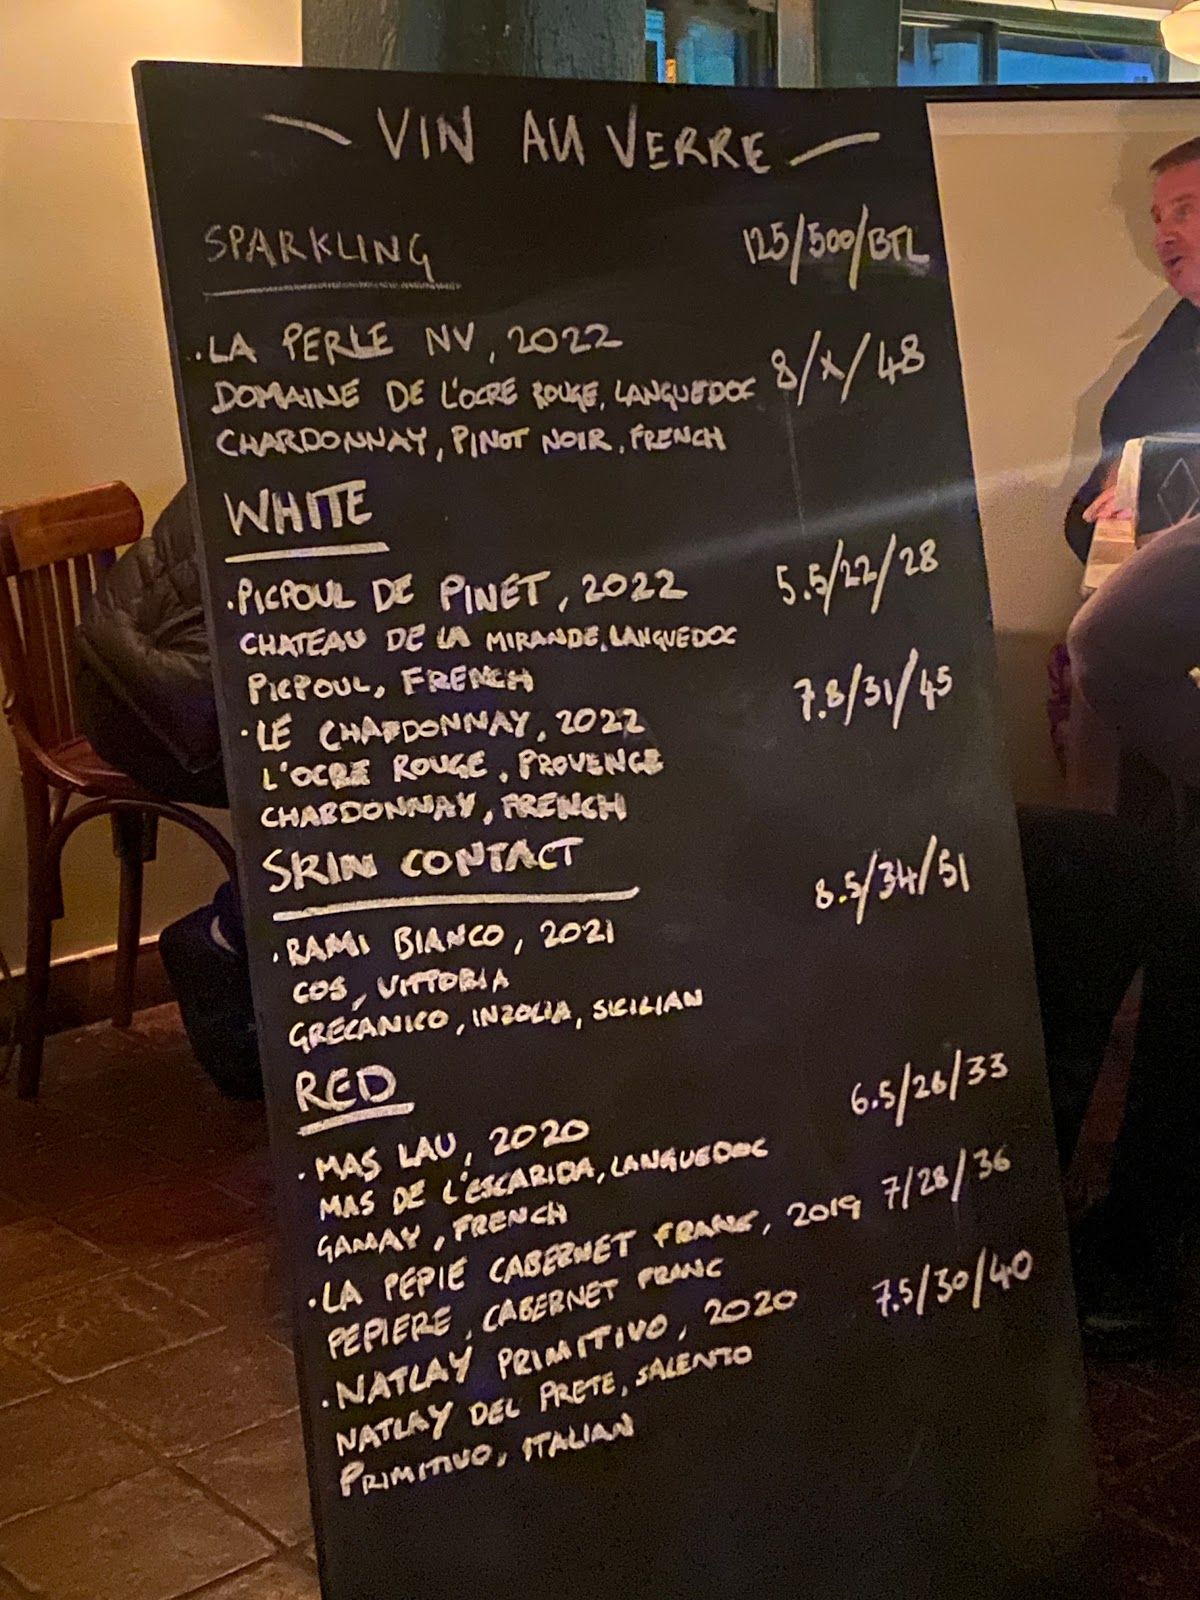 - VIN AU VERRE -
SPARKLING 125/500/BTL
. LA PERLE NV, 2022
DOMAINE DE L'OCRE ROUGE, LANGUEDOC 8/X/48
CHARDONNAY, PINOT NOIR, FRENCH
WHITE
. PICPOUL DE PINET, 2022 5.5/22/28
CHATEAU DE LA MIRANDE, LANGUEDOC
PICPOUL, FRENCH 7.8/31/45
. LE CHARDONNAY, 2022
L'OCRE ROUGE, PROVENCE
CHARDONNAY, FRENCH
SKIN CONTACT 8.5/34/51
. RAMI BIANCO, 2021
COS, VITTORIA
GRECANICO, INZOLIA, SICILIAN
RED 6.5/26/33
. MAS LAU, 2020
MAS DE L'ESCARIDA, LANGUEDOC
GAMAY, FRENCH
. LA PEPIE CABERNET FRANC, 2019 7/28/36
PEPIERE, CABERNET FRANC
. NATLAY PRIMITIVO, 2020 7.5/30/40
NATLAY DEL PRETE, SALENTO
PRIMITIVO, ITALIAN